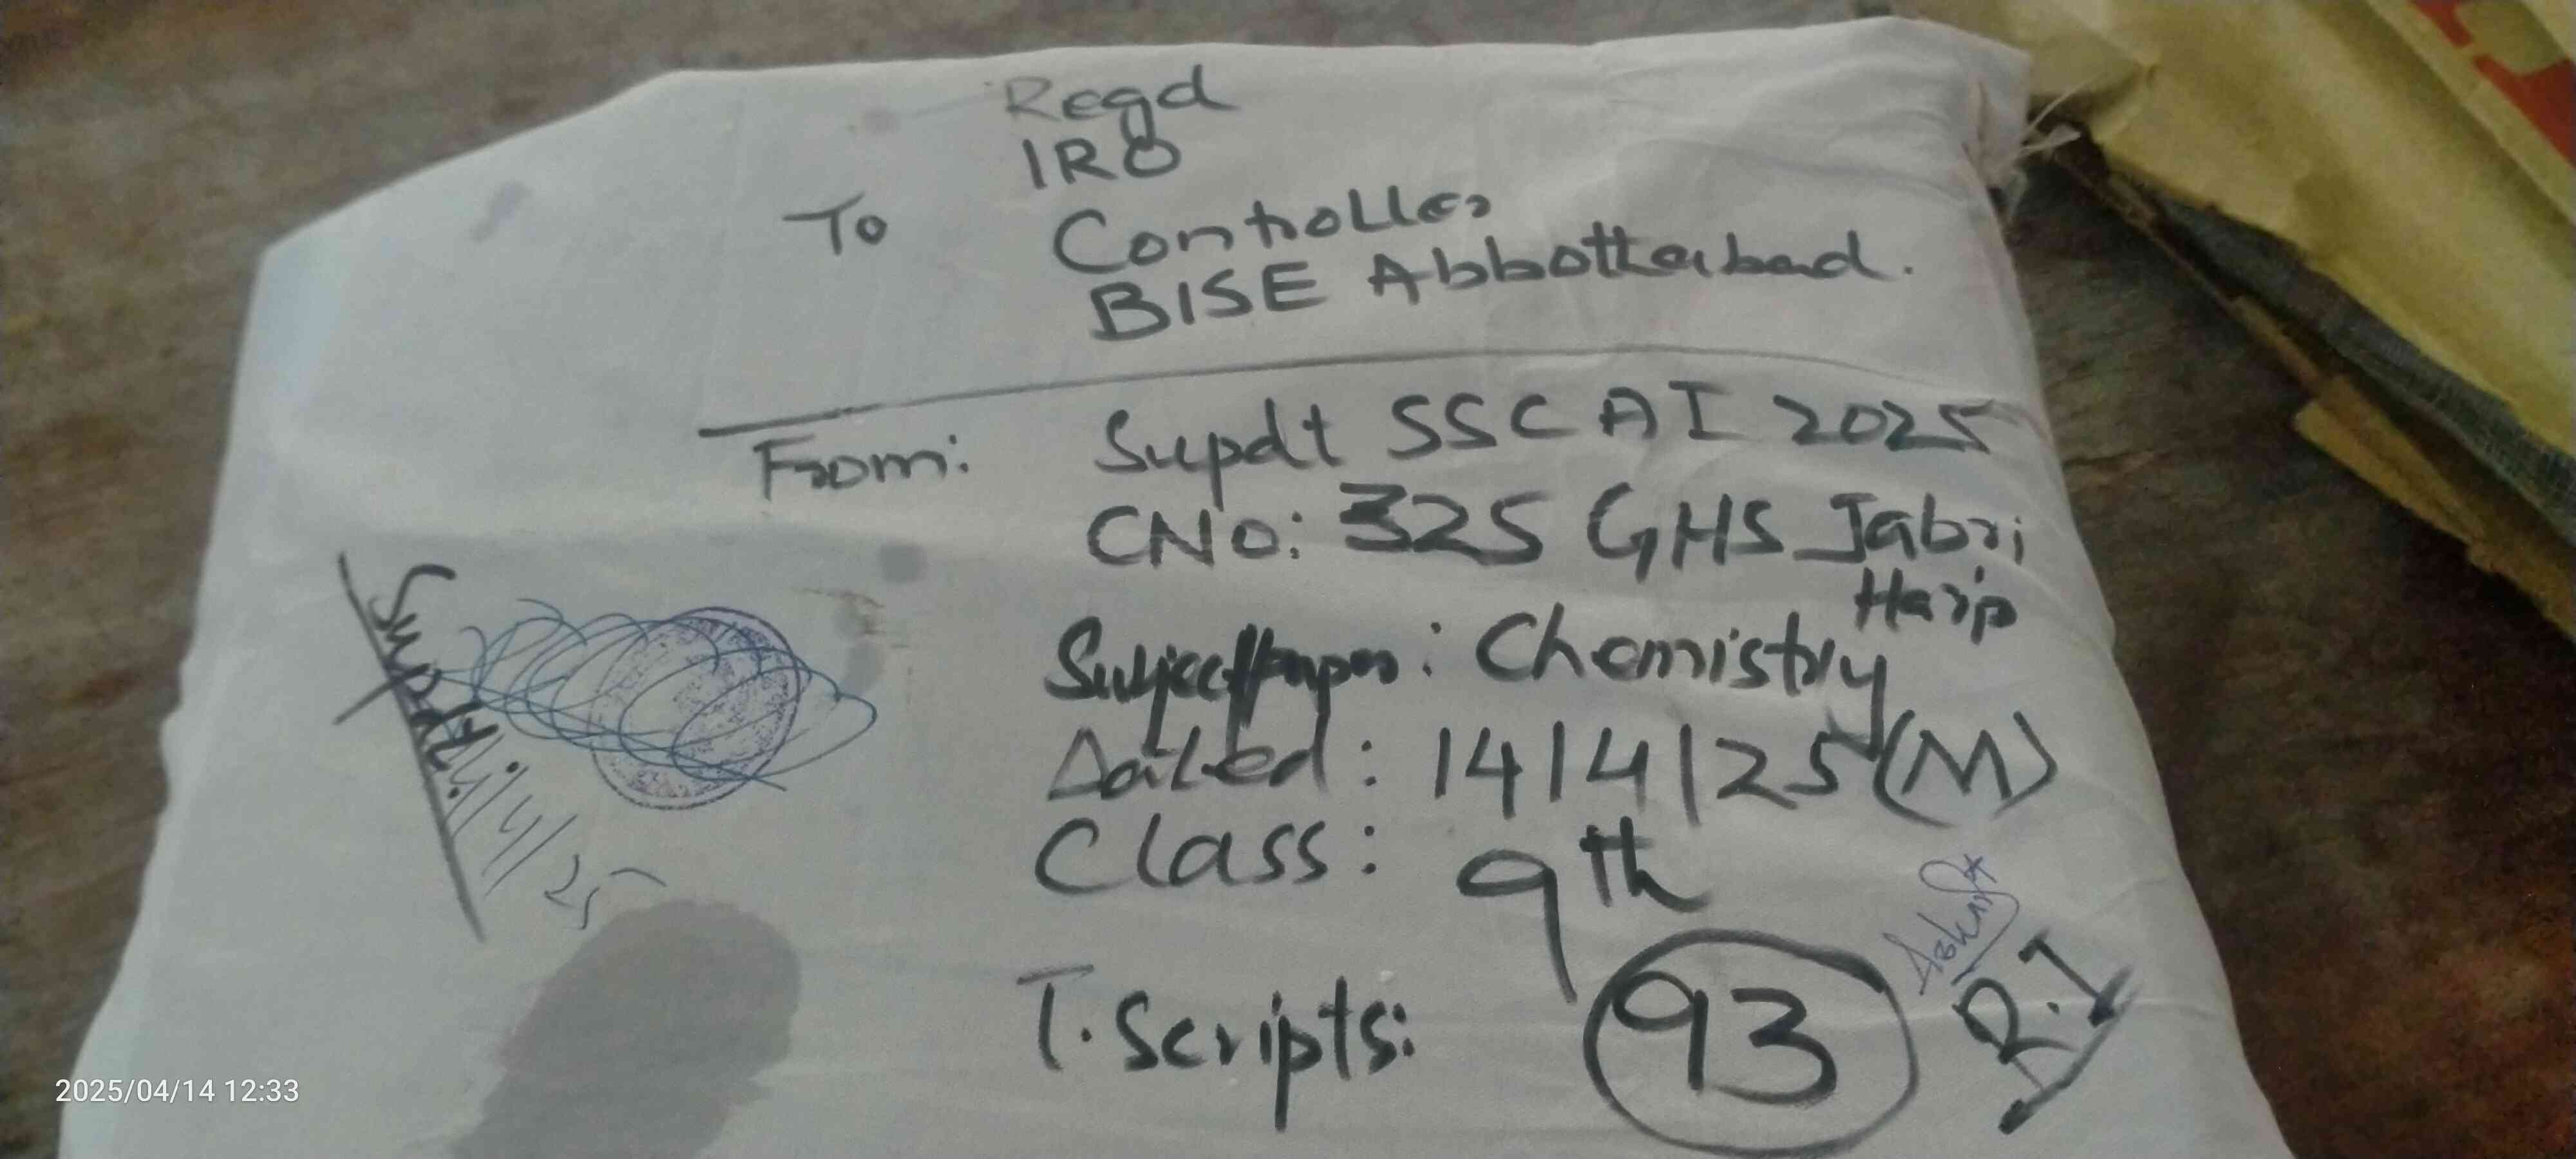 Regd
IRO
To Controller
BISE Abbottabad.
From: Supdt SSC A I 2025
CNO: 325 GHS Jabri
Harip
Subject/paper: Chemistry
Dated: 14/4/25 (M)
Class: 9th
T. Scripts: 93
R.I
Supdt
14/4/25
2025/04/14 12:33